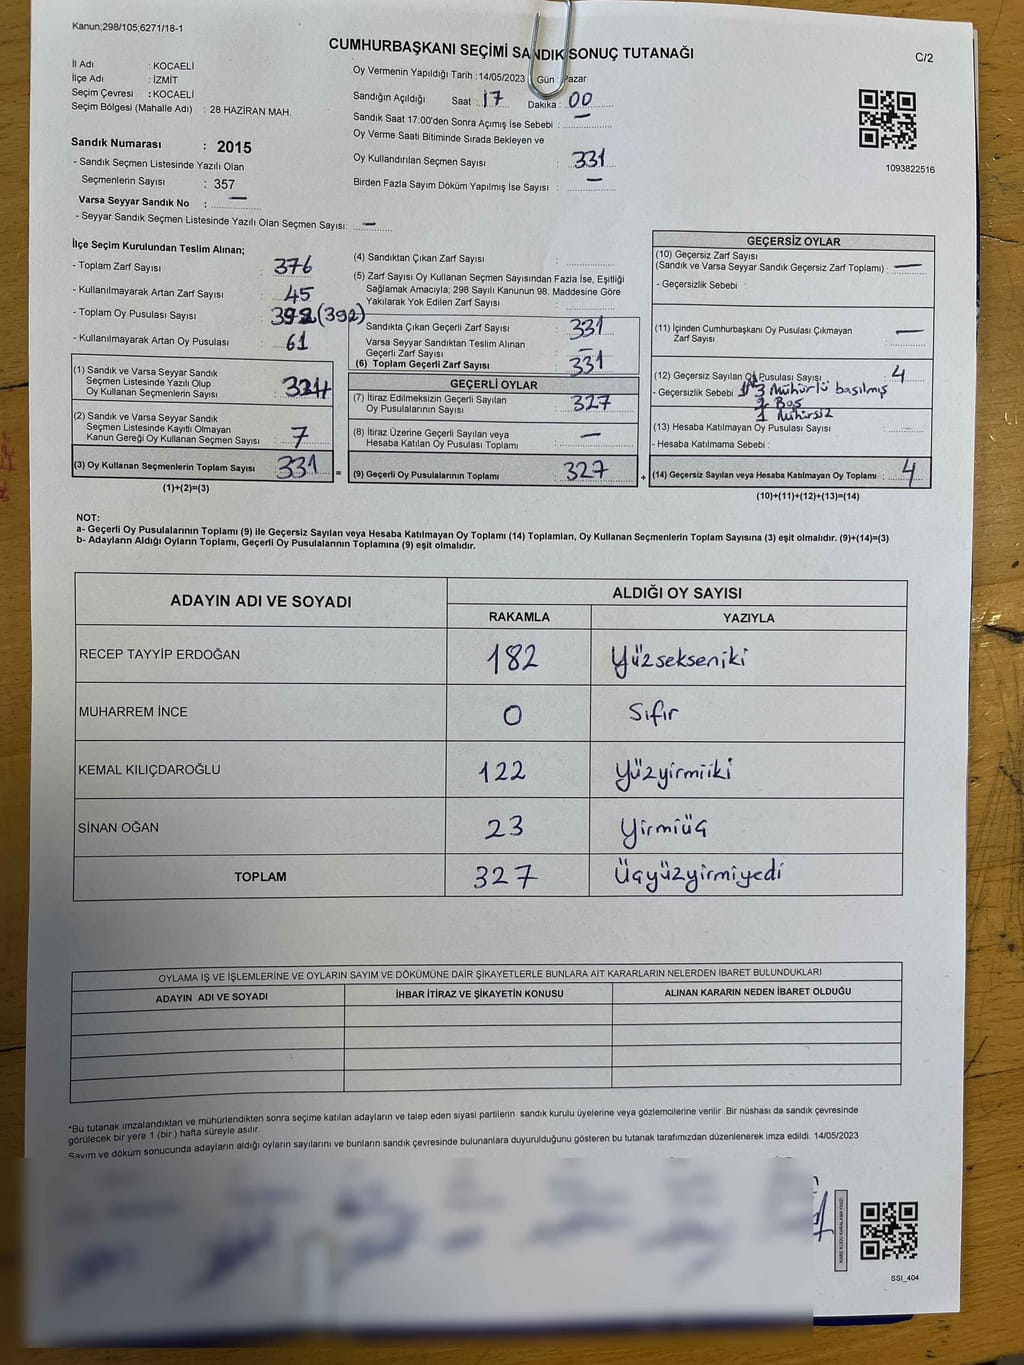 Kanun;298/105;6271/18-1
CUMHURBAŞKANI SEÇİMİ SANDIK SONUÇ TUTANAĞI
C/2
İl Adı : KOCAELİ
İlçe Adı : İZMİT
Seçim Çevresi : KOCAELİ
Seçim Bölgesi (Mahalle Adı) : 28 HAZİRAN MAH.
Oy Vermenin Yapıldığı Tarih : 14/05/2023 Gün : Pazar
Sandığın Açıldığı Saat : 17 Dakika : 00
Sandık Saat 17:00'den Sonra Açımış İse Sebebi : —
Oy Verme Saati Bitiminde Sırada Bekleyen ve
Oy Kullandırılan Seçmen Sayısı : 331
Birden Fazla Sayım Döküm Yapılmış İse Sayısı : —
1093822516
Sandık Numarası : 2015
- Sandık Seçmen Listesinde Yazılı Olan
Seçmenlerin Sayısı : 357
Varsa Seyyar Sandık No : —
- Seyyar Sandık Seçmen Listesinde Yazılı Olan Seçmen Sayısı: —
İlçe Seçim Kurulundan Teslim Alınan;
- Toplam Zarf Sayısı : 376
- Kullanılmayarak Artan Zarf Sayısı : 45
- Toplam Oy Pusulası Sayısı : 392 (392)
- Kullanılmayarak Artan Oy Pusulası : 61
(1) Sandık ve Varsa Seyyar Sandık
Seçmen Listesinde Yazılı Olup
Oy Kullanan Seçmenlerin Sayısı : 324
(2) Sandık ve Varsa Seyyar Sandık
Seçmen Listesinde Kayıtlı Olmayan
Kanun Gereği Oy Kullanan Seçmen Sayısı : 7
(3) Oy Kullanan Seçmenlerin Toplam Sayısı : 331 =
(1)+(2)=(3)
(4) Sandıktan Çıkan Zarf Sayısı :
(5) Zarf Sayısı Oy Kullanan Seçmen Sayısından Fazla İse, Eşitliği
Sağlamak Amacıyla; 298 Sayılı Kanunun 98. Maddesine Göre
Yakılarak Yok Edilen Zarf Sayısı :
Sandıkta Çıkan Geçerli Zarf Sayısı : 331
Varsa Seyyar Sandıktan Teslim Alınan
Geçerli Zarf Sayısı : —
(6) Toplam Geçerli Zarf Sayısı : 331
GEÇERLİ OYLAR
(7) İtiraz Edilmeksizin Geçerli Sayılan
Oy Pusulalarının Sayısı : 327
(8) İtiraz Üzerine Geçerli Sayılan veya
Hesaba Katılan Oy Pusulası Toplamı : —
(9) Geçerli Oy Pusulalarının Toplamı : 327 +
GEÇERSİZ OYLAR
(10) Geçersiz Zarf Sayısı
(Sandık ve Varsa Seyyar Sandık Geçersiz Zarf Toplamı) : —
- Geçersizlik Sebebi :
(11) İçinden Cumhurbaşkanı Oy Pusulası Çıkmayan
Zarf Sayısı : —
(12) Geçersiz Sayılan Oy Pusulası Sayısı : 4
- Geçersizlik Sebebi : 3 Mühürlü basılmış
Boş
1 Mühürsiz
(13) Hesaba Katılmayan Oy Pusulası Sayısı :
- Hesaba Katılmama Sebebi :
(14) Geçersiz Sayılan veya Hesaba Katılmayan Oy Toplamı : 4
(10)+(11)+(12)+(13)=(14)
NOT:
a- Geçerli Oy Pusulalarının Toplamı (9) ile Geçersiz Sayılan veya Hesaba Katılmayan Oy Toplamı (14) Toplamları, Oy Kullanan Seçmenlerin Toplam Sayısına (3) eşit olmalıdır. (9)+(14)=(3)
b- Adayların Aldığı Oyların Toplamı, Geçerli Oy Pusulalarının Toplamına (9) eşit olmalıdır.
ADAYIN ADI VE SOYADI
ALDIĞI OY SAYISI
RAKAMLA YAZIYLA
RECEP TAYYİP ERDOĞAN 182 Yüzsekseniki
MUHARREM İNCE 0 Sıfır
KEMAL KILIÇDAROĞLU 122 Yüzyirmiiki
SİNAN OĞAN 23 Yirmiüç
TOPLAM 327 Üçyüzyirmiyedi
OYLAMA İŞ VE İŞLEMLERİNE VE OYLARIN SAYIM VE DÖKÜMÜNE DAİR ŞİKAYETLERLE BUNLARA AİT KARARLARIN NELERDEN İBARET BULUNDUKLARI
ADAYIN ADI VE SOYADI İHBAR İTİRAZ VE ŞİKAYETİN KONUSU ALINAN KARARIN NEDEN İBARET OLDUĞU
*Bu tutanak imzalandıktan ve mühürlendikten sonra seçime katılan adayların ve talep eden siyasi partilerin sandık kurulu üyelerine veya gözlemcilerine verilir .Bir nüshası da sandık çevresinde
görülecek bir yere 1 (bir ) hafta süreyle asılır.
Sayım ve döküm sonucunda adayların aldığı oyların sayılarını ve bunların sandık çevresinde bulunanlara duyurulduğunu gösteren bu tutanak tarafımızdan düzenlenerek imza edildi. 14/05/2023
SSI_404